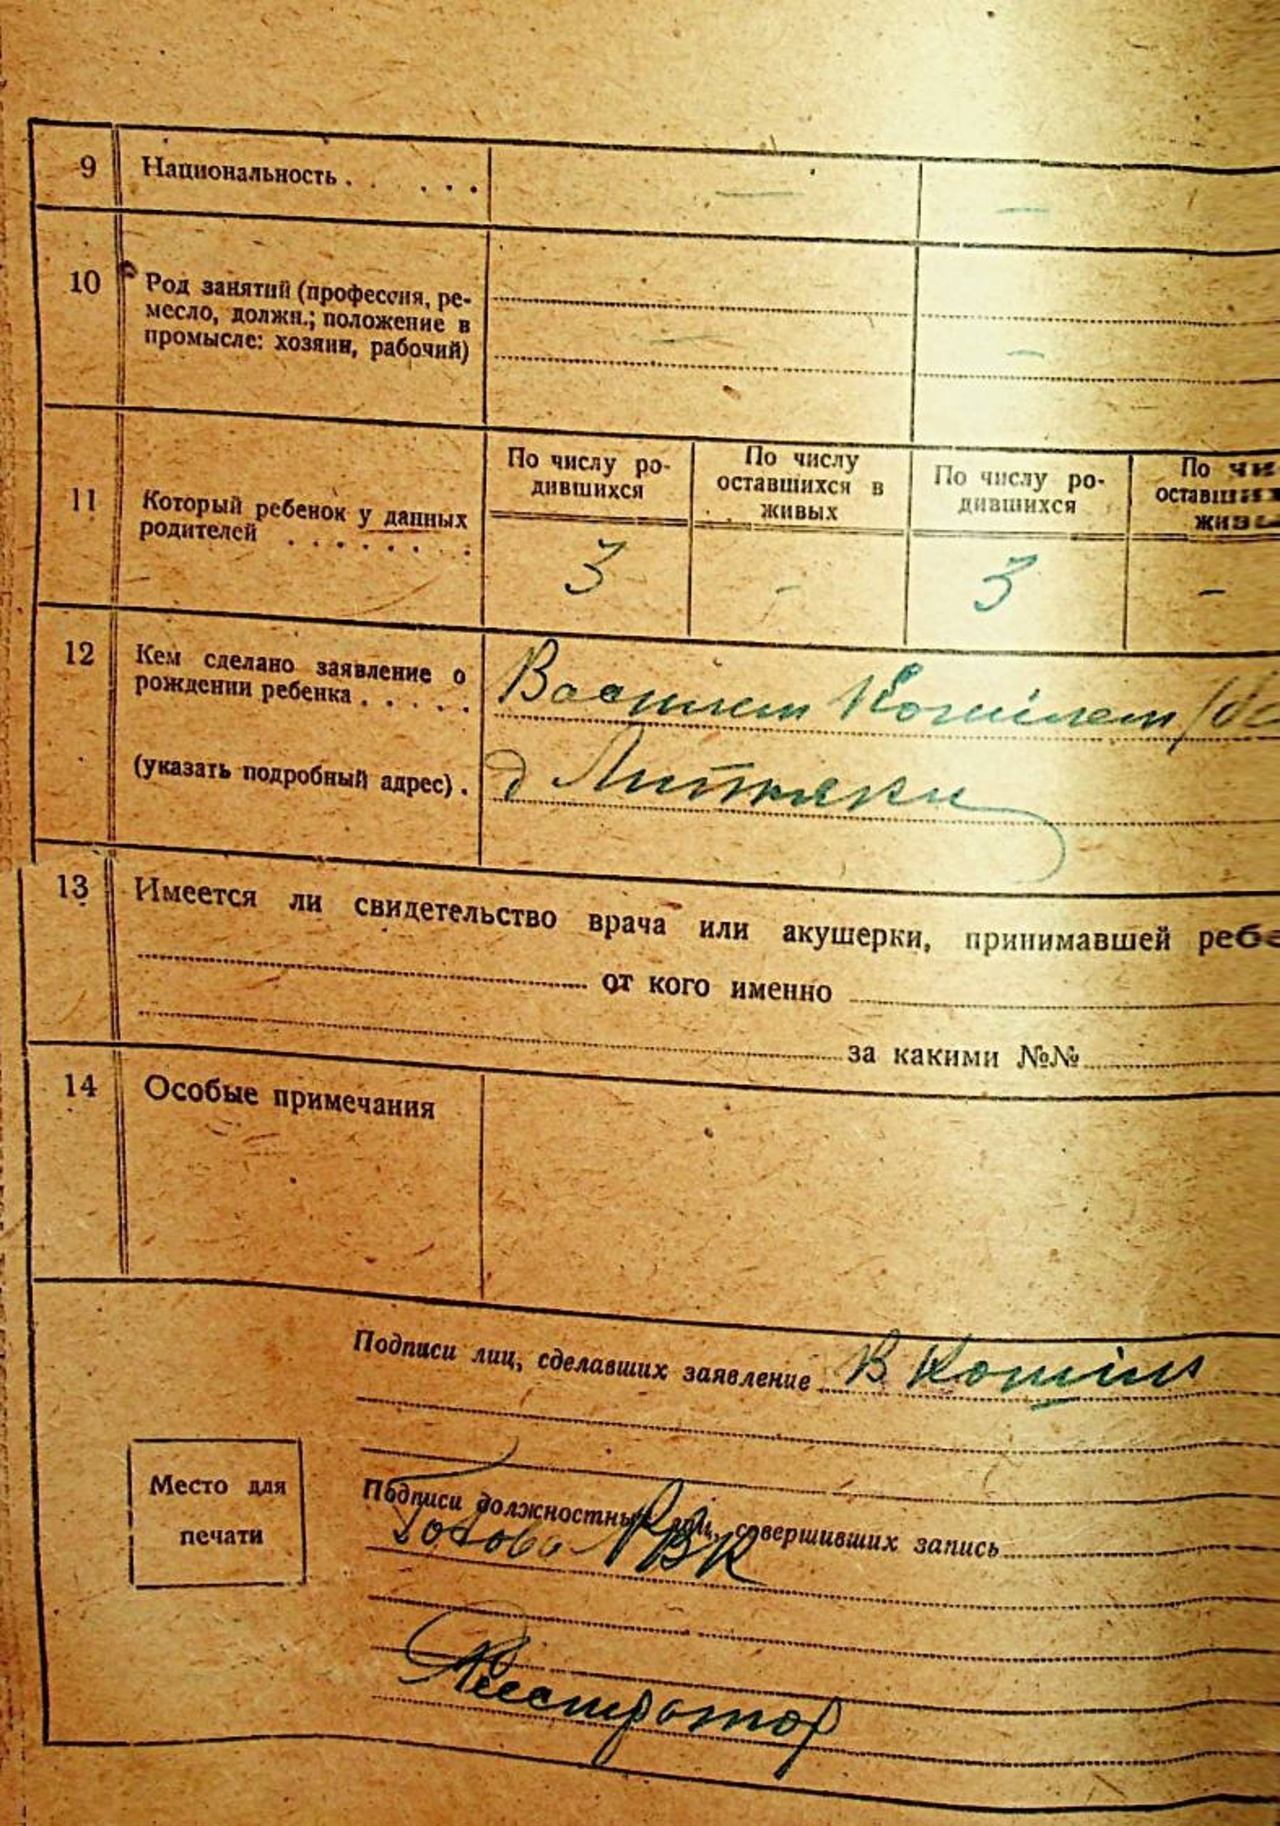 9 Национальность . . . . . — —
10 Род занятий (профессия, ре-
месло, должн.; положение в
промысле: хозяин, рабочий) — —
По числу ро-
дившихся
По числу
оставшихся в
живых
По числу ро-
дившихся
По чи
оставших
живы
11 Который ребенок у данных
родителей . . . . . . . .
3 - 3 -
12 Кем сделано заявление о
рождении ребенка . . . . .
Василем
(указать подробный адрес) .
д Литвяки
13 Имеется ли свидетельство врача или акушерки, принимавшей ребе
от кого именно
за какими №№
14 Особые примечания
Подписи лиц, сделавших заявление В
Место для
печати
Подписи должностных лиц, совершивших запись
Голова РВК
Реєстратор